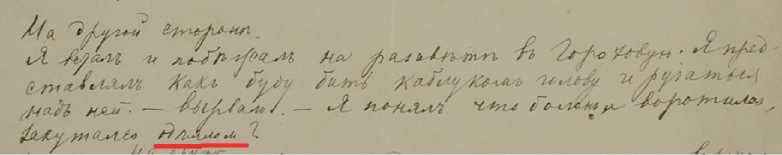 На другой стороны.
Я взялъ и побѣжалъ на разсвѣтѣ въ Гороховую. Я пред-
ставлялъ какъ буду бить каблукомъ голову и ругаться
надъ ней. — вырваю. — Я понялъ что болѣзнь воротилась,
закутался одѣяломъ?